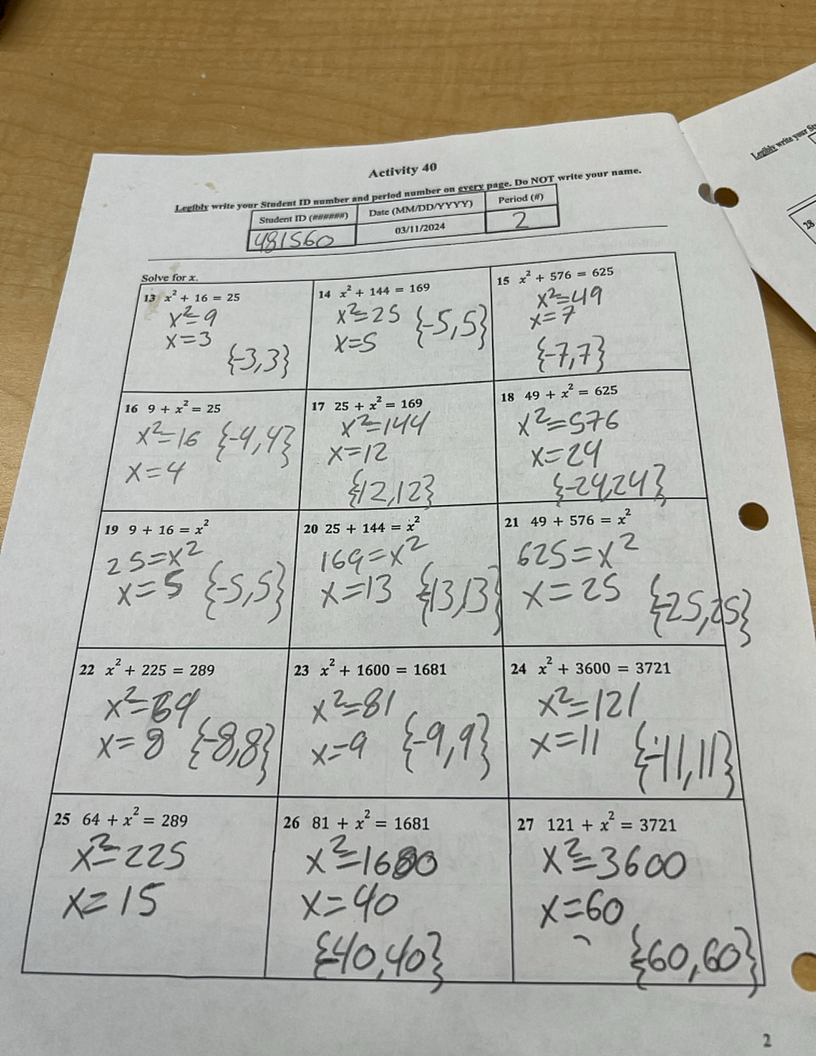 Activity 40
Legibly write your Student ID number and period number on every page. Do NOT write your name.
Student ID (######) Date (MM/DD/YYYY) Period (#)
481560 03/11/2024 2
Solve for x.
13 x² + 16 = 25
x²=9
x=3
{-3,3}
14 x² + 144 = 169
x²=25
x=5
{-5,5}
15 x² + 576 = 625
x²=49
x=7
{-7,7}
16 9 + x² = 25
x²=16
x=4
{-4,4}
17 25 + x² = 169
x²=144
x=12
{12,12}
18 49 + x² = 625
x²=576
x=24
{-24,24}
19 9 + 16 = x²
25=x²
x=5
{-5,5}
20 25 + 144 = x²
169=x²
x=13
{13,13}
21 49 + 576 = x²
625=x²
x=25
{-25,25}
22 x² + 225 = 289
x²=64
x=8
{-8,8}
23 x² + 1600 = 1681
x²=81
x=9
{-9,9}
24 x² + 3600 = 3721
x²=121
x=11
{-11,11}
25 64 + x² = 289
x²=225
x=15
26 81 + x² = 1681
x²=1600
x=40
{-40,40}
27 121 + x² = 3721
x²=3600
x=60
{-60,60}
2
Legibly write your
28